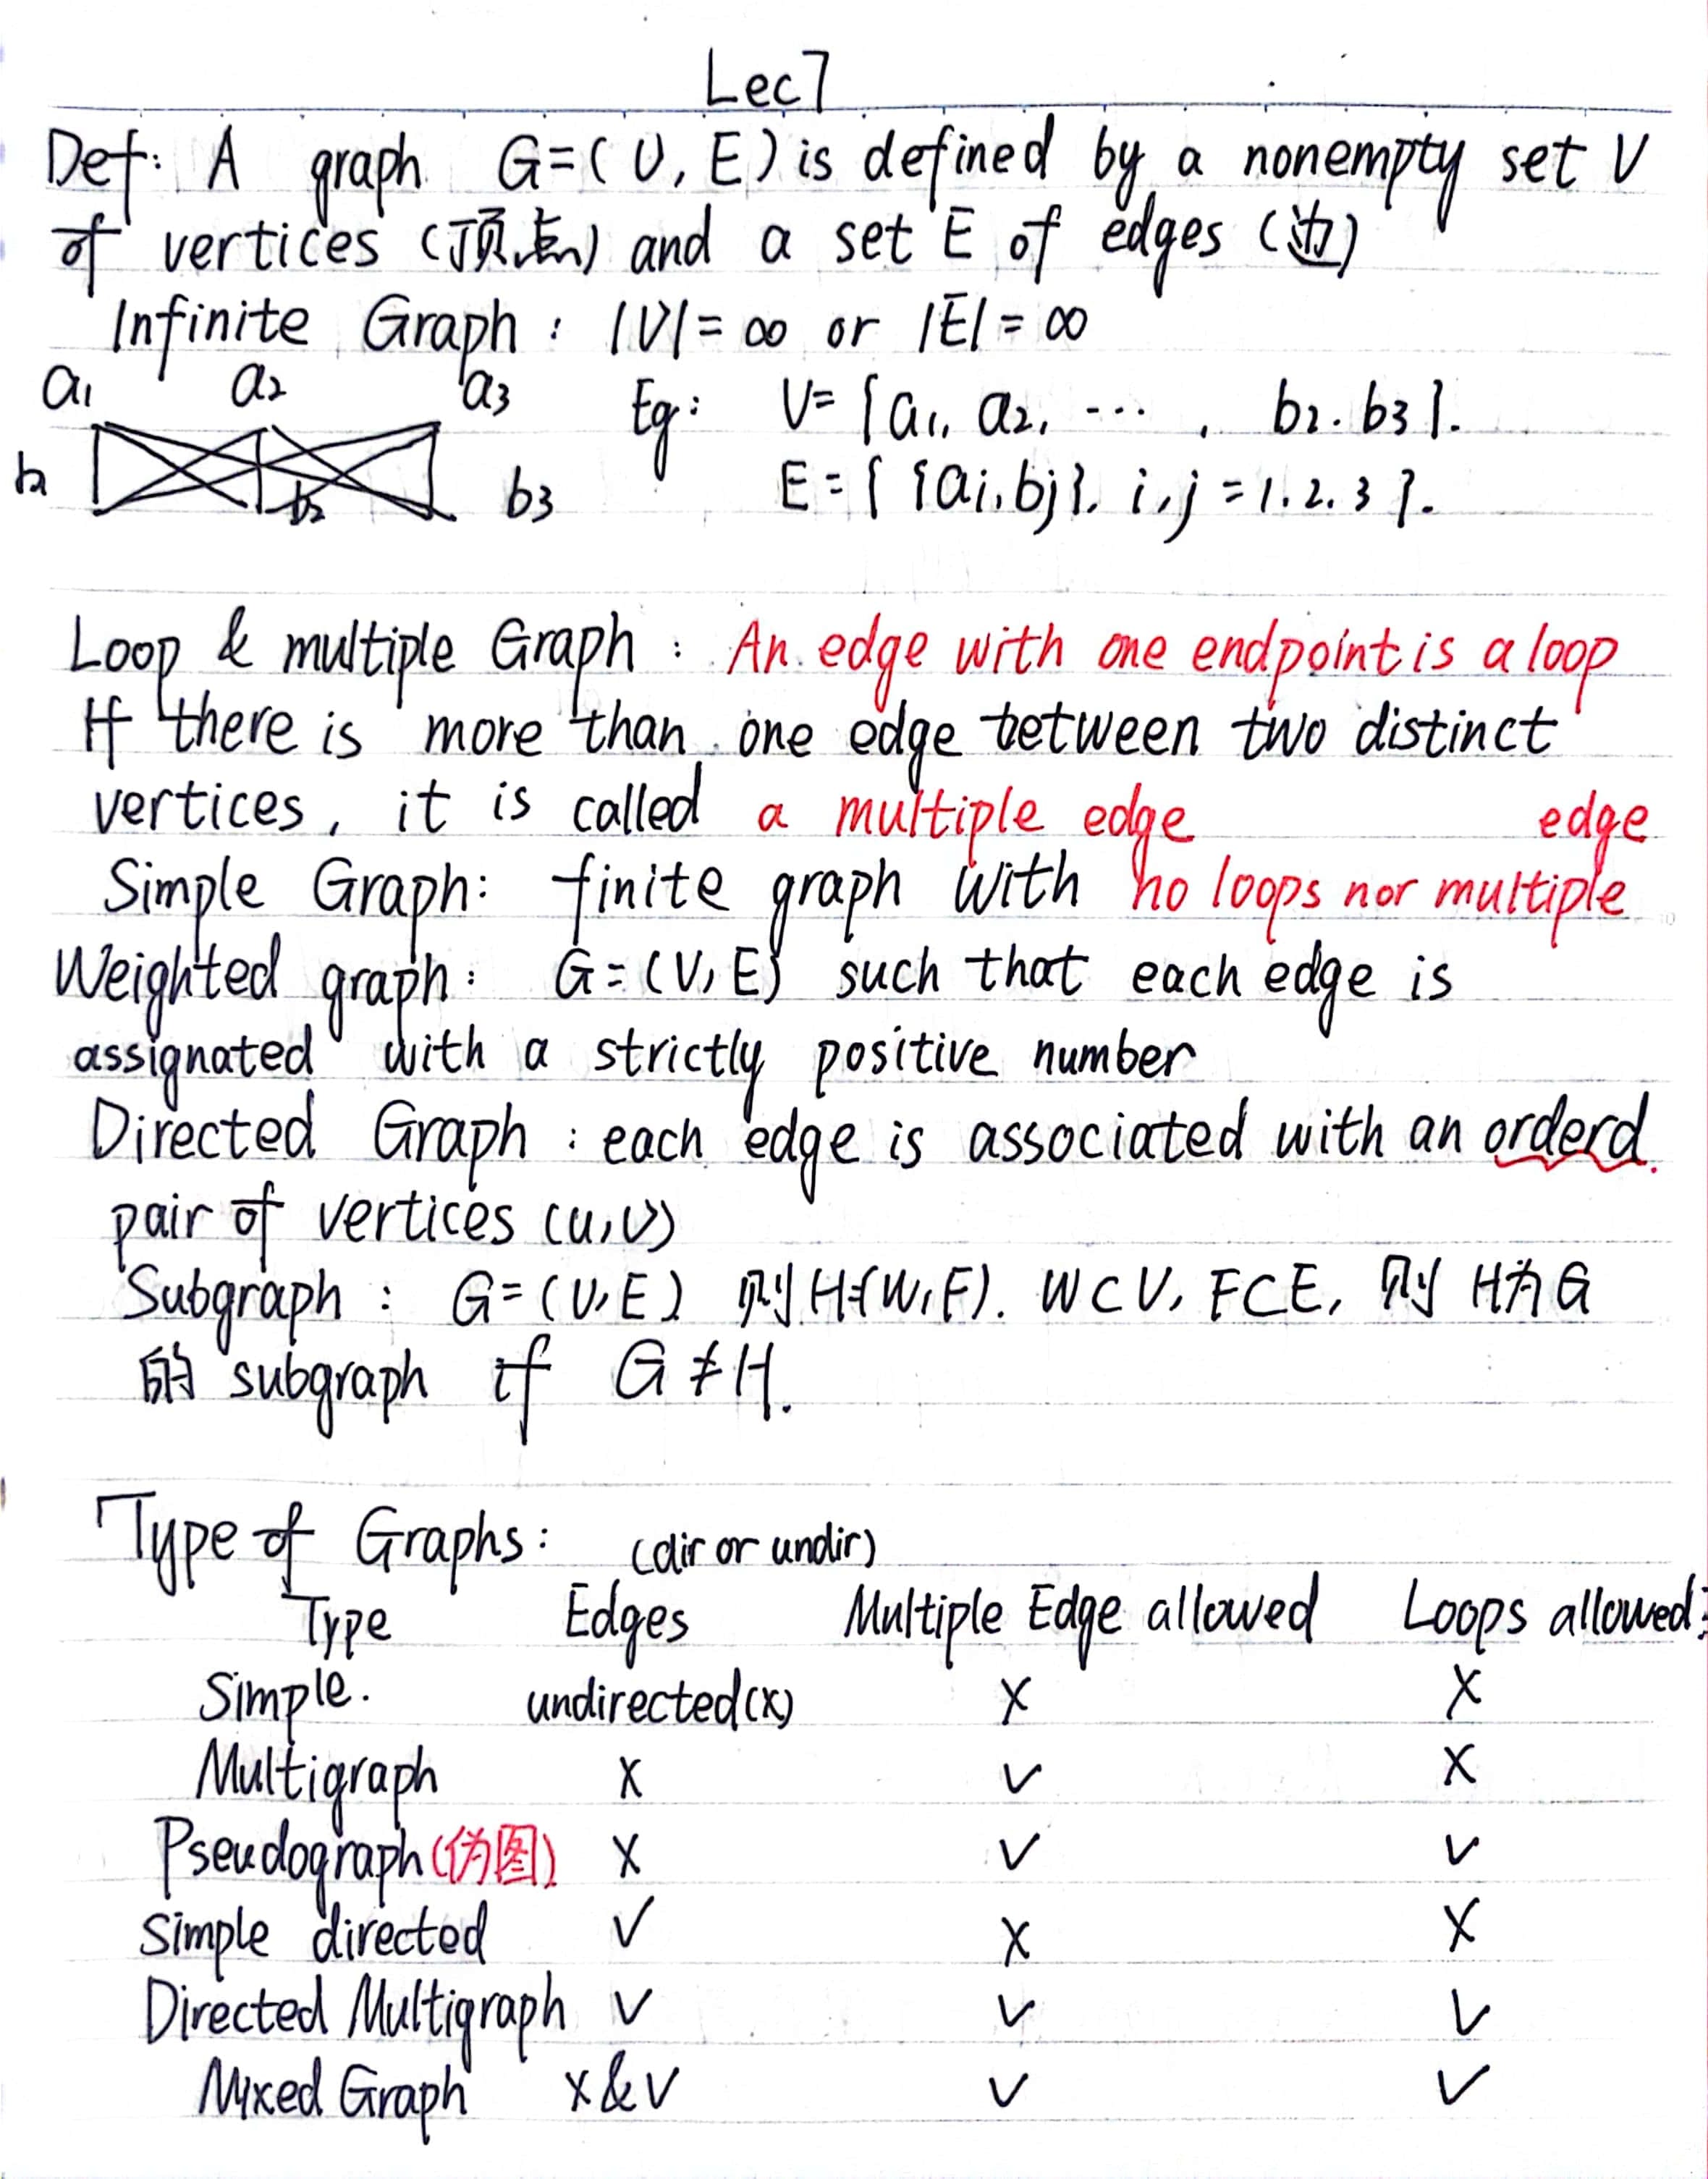 Lec7
Def: A graph G=(V, E) is defined by a nonempty set V
of vertices (顶点) and a set E of edges (边)
Infinite Graph : |V|= ∞ or |E|= ∞
a1 a2 a3 Eg: V= {a1, a2, ..., b2. b3}.
b2 b3 E={ {ai, bj}, i,j =1.2.3 }.
Loop & multiple Graph : An edge with one endpoint is a loop
If there is more than one edge between two distinct
vertices, it is called a multiple edge
edge
Simple Graph: finite graph with no loops nor multiple
Weighted graph: G=(V, E) such that each edge is
assignated with a strictly positive number
Directed Graph : each edge is associated with an orderd
pair of vertices (u,v)
Subgraph : G=(V,E) 则H=(W,F). W⊂V, F⊂E, 则 H为G
的 subgraph if G≠H.
Type of Graphs: (dir or undir)
Type Edges Multiple Edge allowed Loops allowed:
Simple. undirected(x) X X
Multigraph X ✓ X
Pseudograph(伪图) X ✓ ✓
Simple directed ✓ X X
Directed Multigraph ✓ ✓ ✓
Mixed Graph X&✓ ✓ ✓